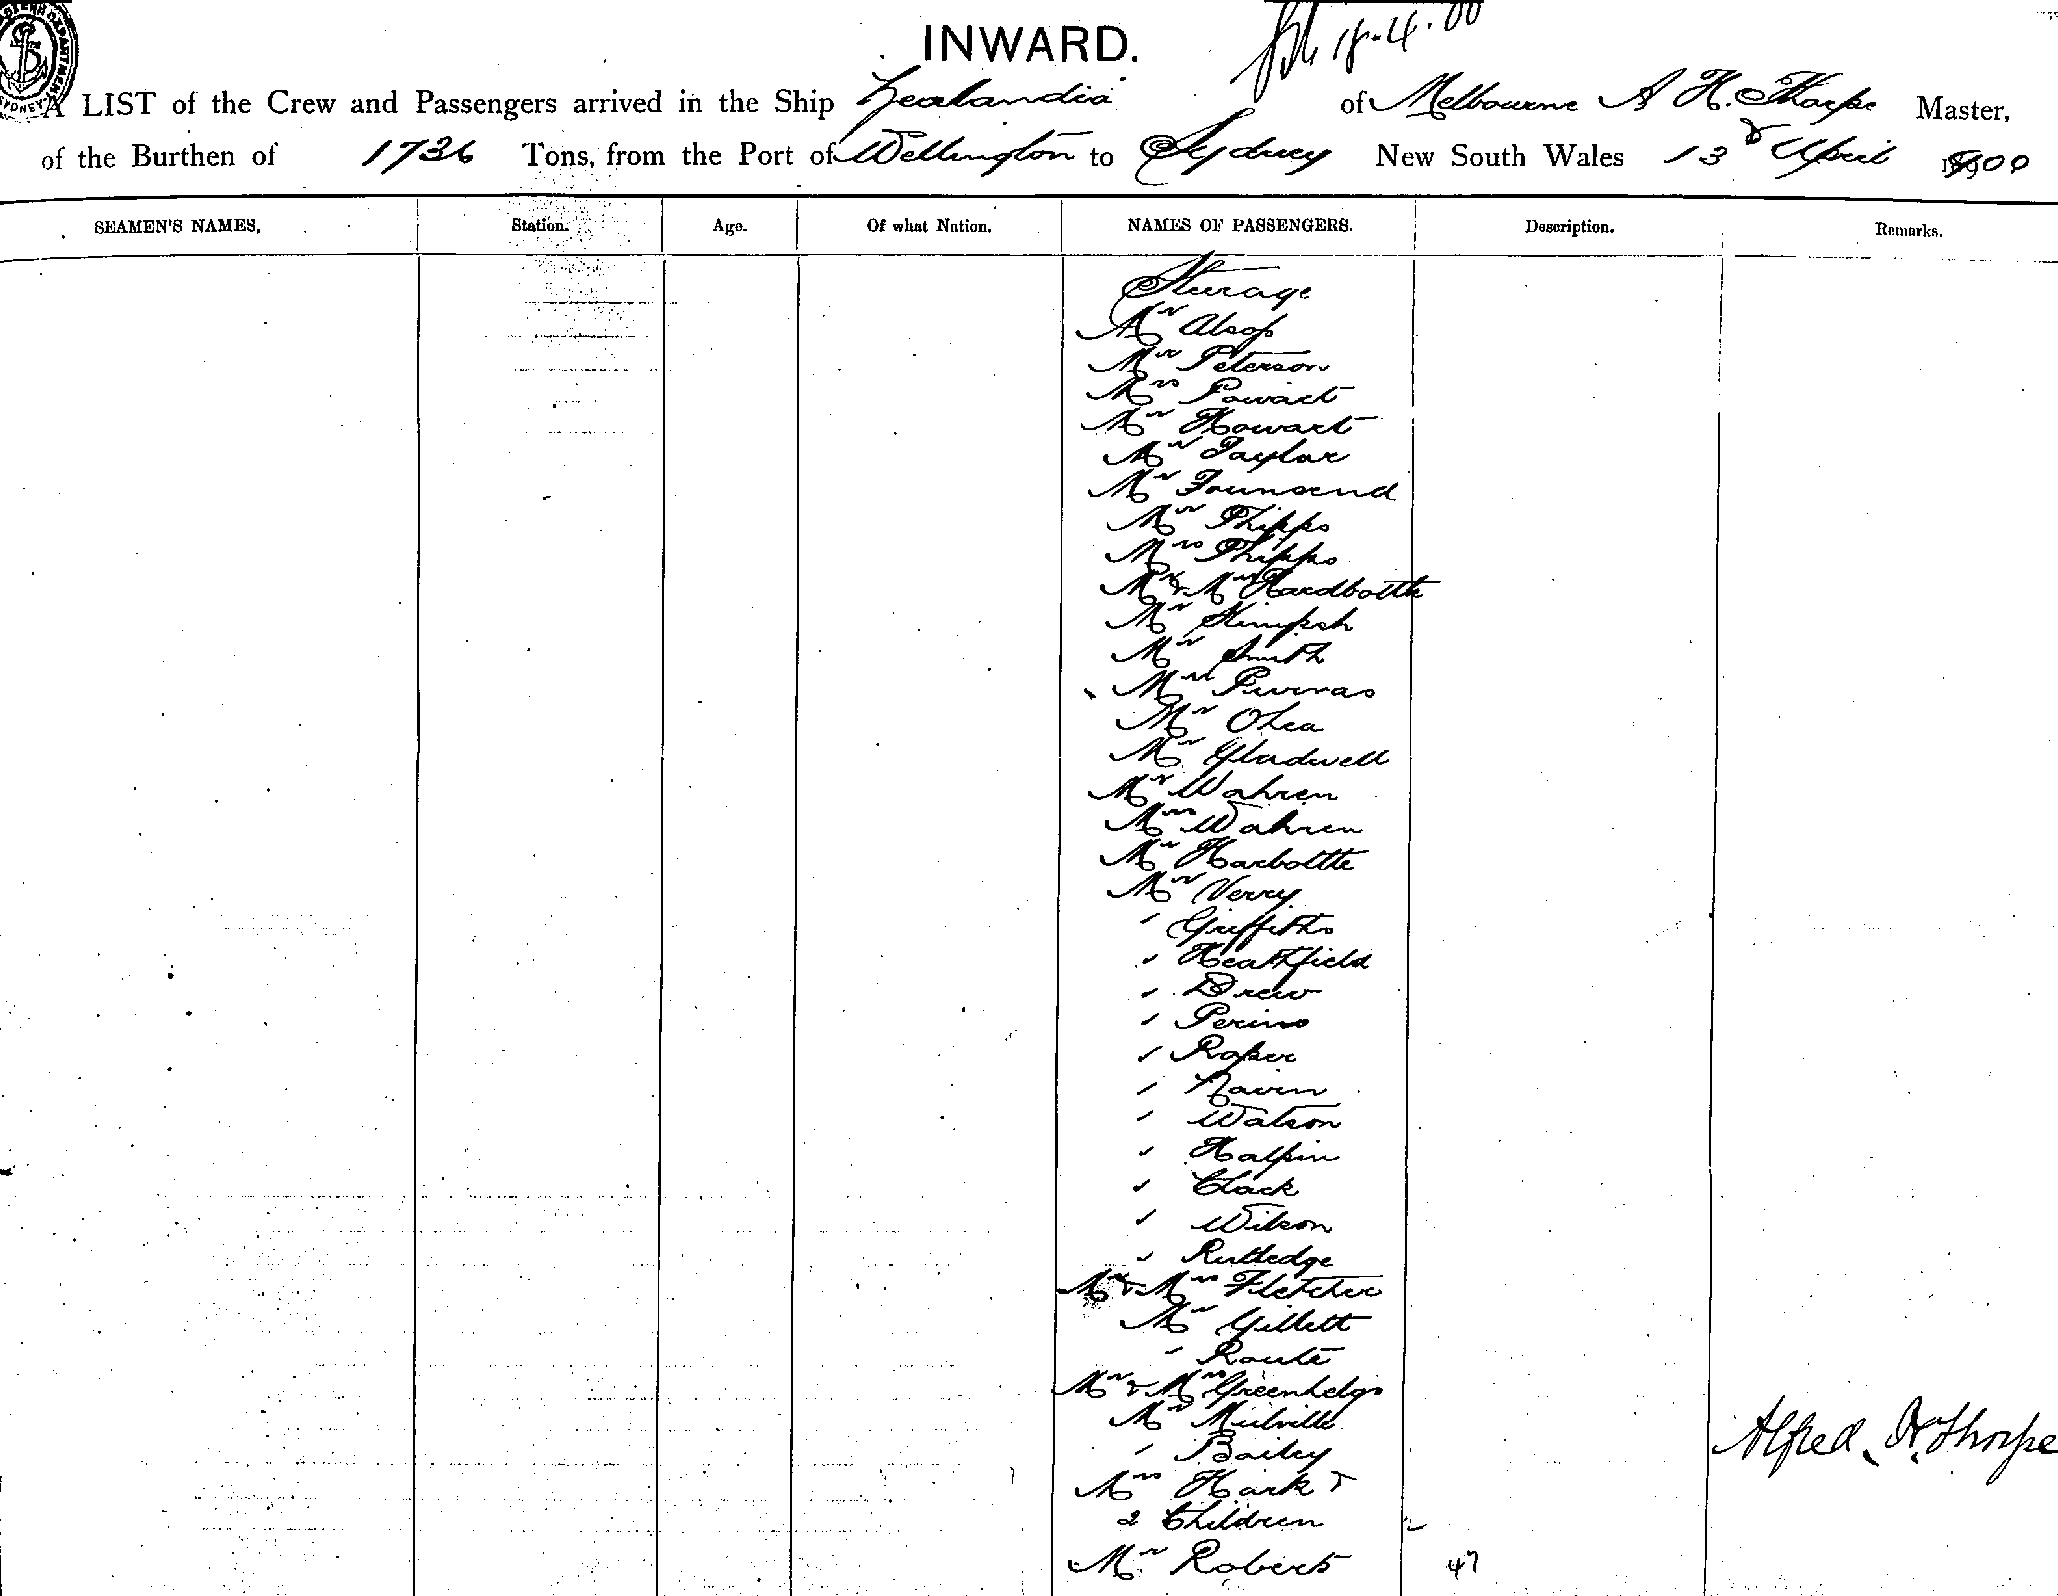 INWARD.
18.4.00
A LIST of the Crew and Passengers arrived in the Ship Zealandia of Melbourne A H. Thorpe Master,
of the Burthen of 1736 Tons, from the Port of Wellington to Sydney New South Wales 13th April 1900
SEAMEN'S NAMES. Station. Age. Of what Nation. NAMES OF PASSENGERS. Description. Remarks.
Steerage
Mr Alsop
Mr Peterson
Mrs Powart
Mr Howart
Mr Taylor
Mr Townsend
Mr Phipps
Mrs Phipps
Mr & Mrs Hardbottle
Mr
Mr Smith
Mrs Purvras
Mr Ohea
Mr Gladwell
Mr Wahren
Mrs Wahren
Mr Harbottle
Mr Verry
" Griffiths
" Heathfield
" Drew
" Perino
" Roper
" Navin
" Watson
" Halpin
" Clack
" Wilson
" Rutledge
Mr & Mrs Fletcher
Mr Gillett
" Route
Mr & Mrs Greenhelgs
Mr Mulville
" Bailey
Alfred. H. Thorpe
Mrs Hark &
2 Children
Mr Roberts 47